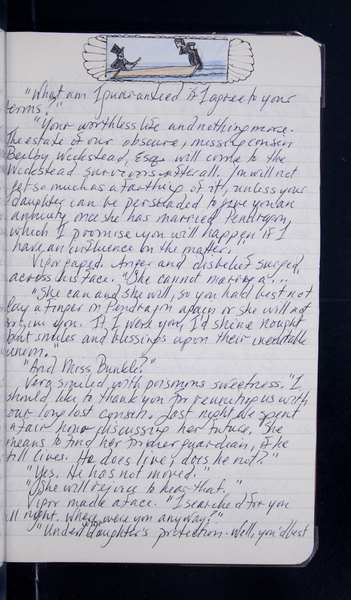 "What am I guaranteed if I agree to your
terms?"
"Your worthless life and nothing more.
The estate of our obscure, missing cousin
Bexlby Wickstead, Esq. will come to the
Wickstead survivors after all. You will not
get so much as a farthing of it, unless your
daughter can be persuaded to give you an
annuity once she has married Pendragon,
which I promise you will happen if I
have an influence on the matter."
Vipr gaped. Anger and disbelief surged
across his face. "She cannot marry a ...
"She can and she will, so you had best not
lay a finger on Pendragon again or she will not
forgive you. If I were you, I'd shine nought
but smiles and blessings upon their inevitable
union."
"And Miss Bunkle?"
Vera smiled with poisonous sweetness. "I
should like to thank you for reuniting us with
our long lost cousin. Last night we spent
a fair hour discussing her future. She
means to find her former guardian, if he
still lives. He does live, does he not?"
"Yes. He has not moved."
"She will rejoice to hear that."
Vipr made a face. "I searched for you
all night. Where were you anyway?"
"Under your daughter's protection. Well, you'd best